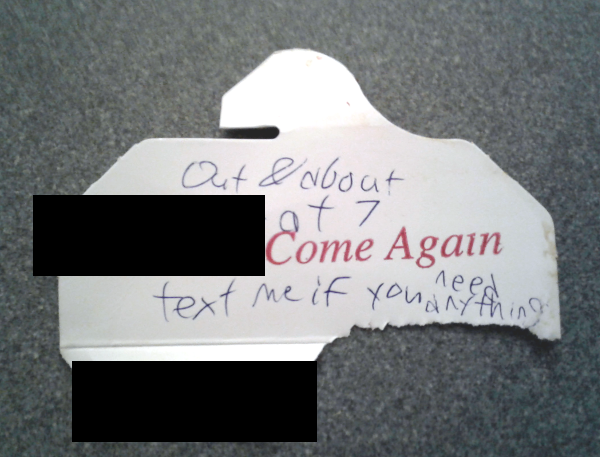 Out & about
at 7
Come Again
text me if you need
anything